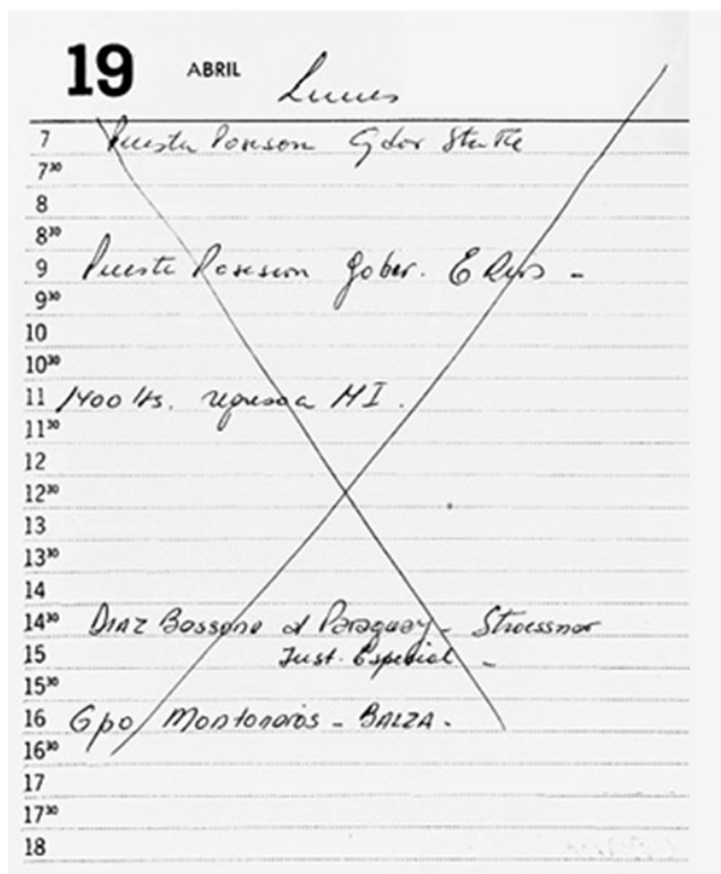 19 ABRIL Lunes
7 Puesta Posesion Gdor Sta Fe
7³⁰
8
8³⁰
9 Puesta Posesion Gober. E Rios -
9³⁰
10
10³⁰
11 1400 Hs. regreso a MI.
11³⁰
12
12³⁰
13
13³⁰
14
14³⁰ DIAZ Bessone al Paraguay - Stroessner
15 Just. Especial -
15³⁰
16 Gpo Montoneros - BALZA.
16³⁰
17
17³⁰
18